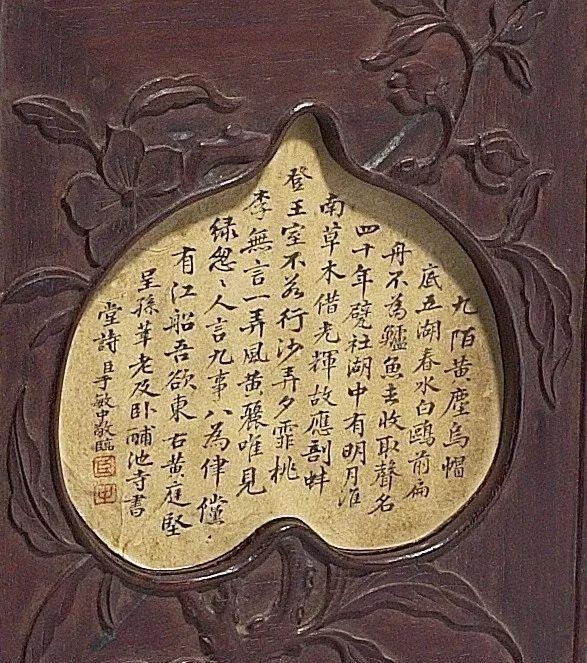 九陌黃塵烏帽
底五湖春水白鷗前扁
舟不為鱸魚去收取聲名
四十年甓社湖中有明月淮
南草木借光輝故應剖蚌
登王室不若行沙弄夕霏桃
李無言一弄風黃鸝唯見
綠怱〻人言九事八為律儻
有江船吾欲東右黃庭堅
呈孫莘老及卧酺池寺書
堂詩 臣于敏中敬臨
臣
中